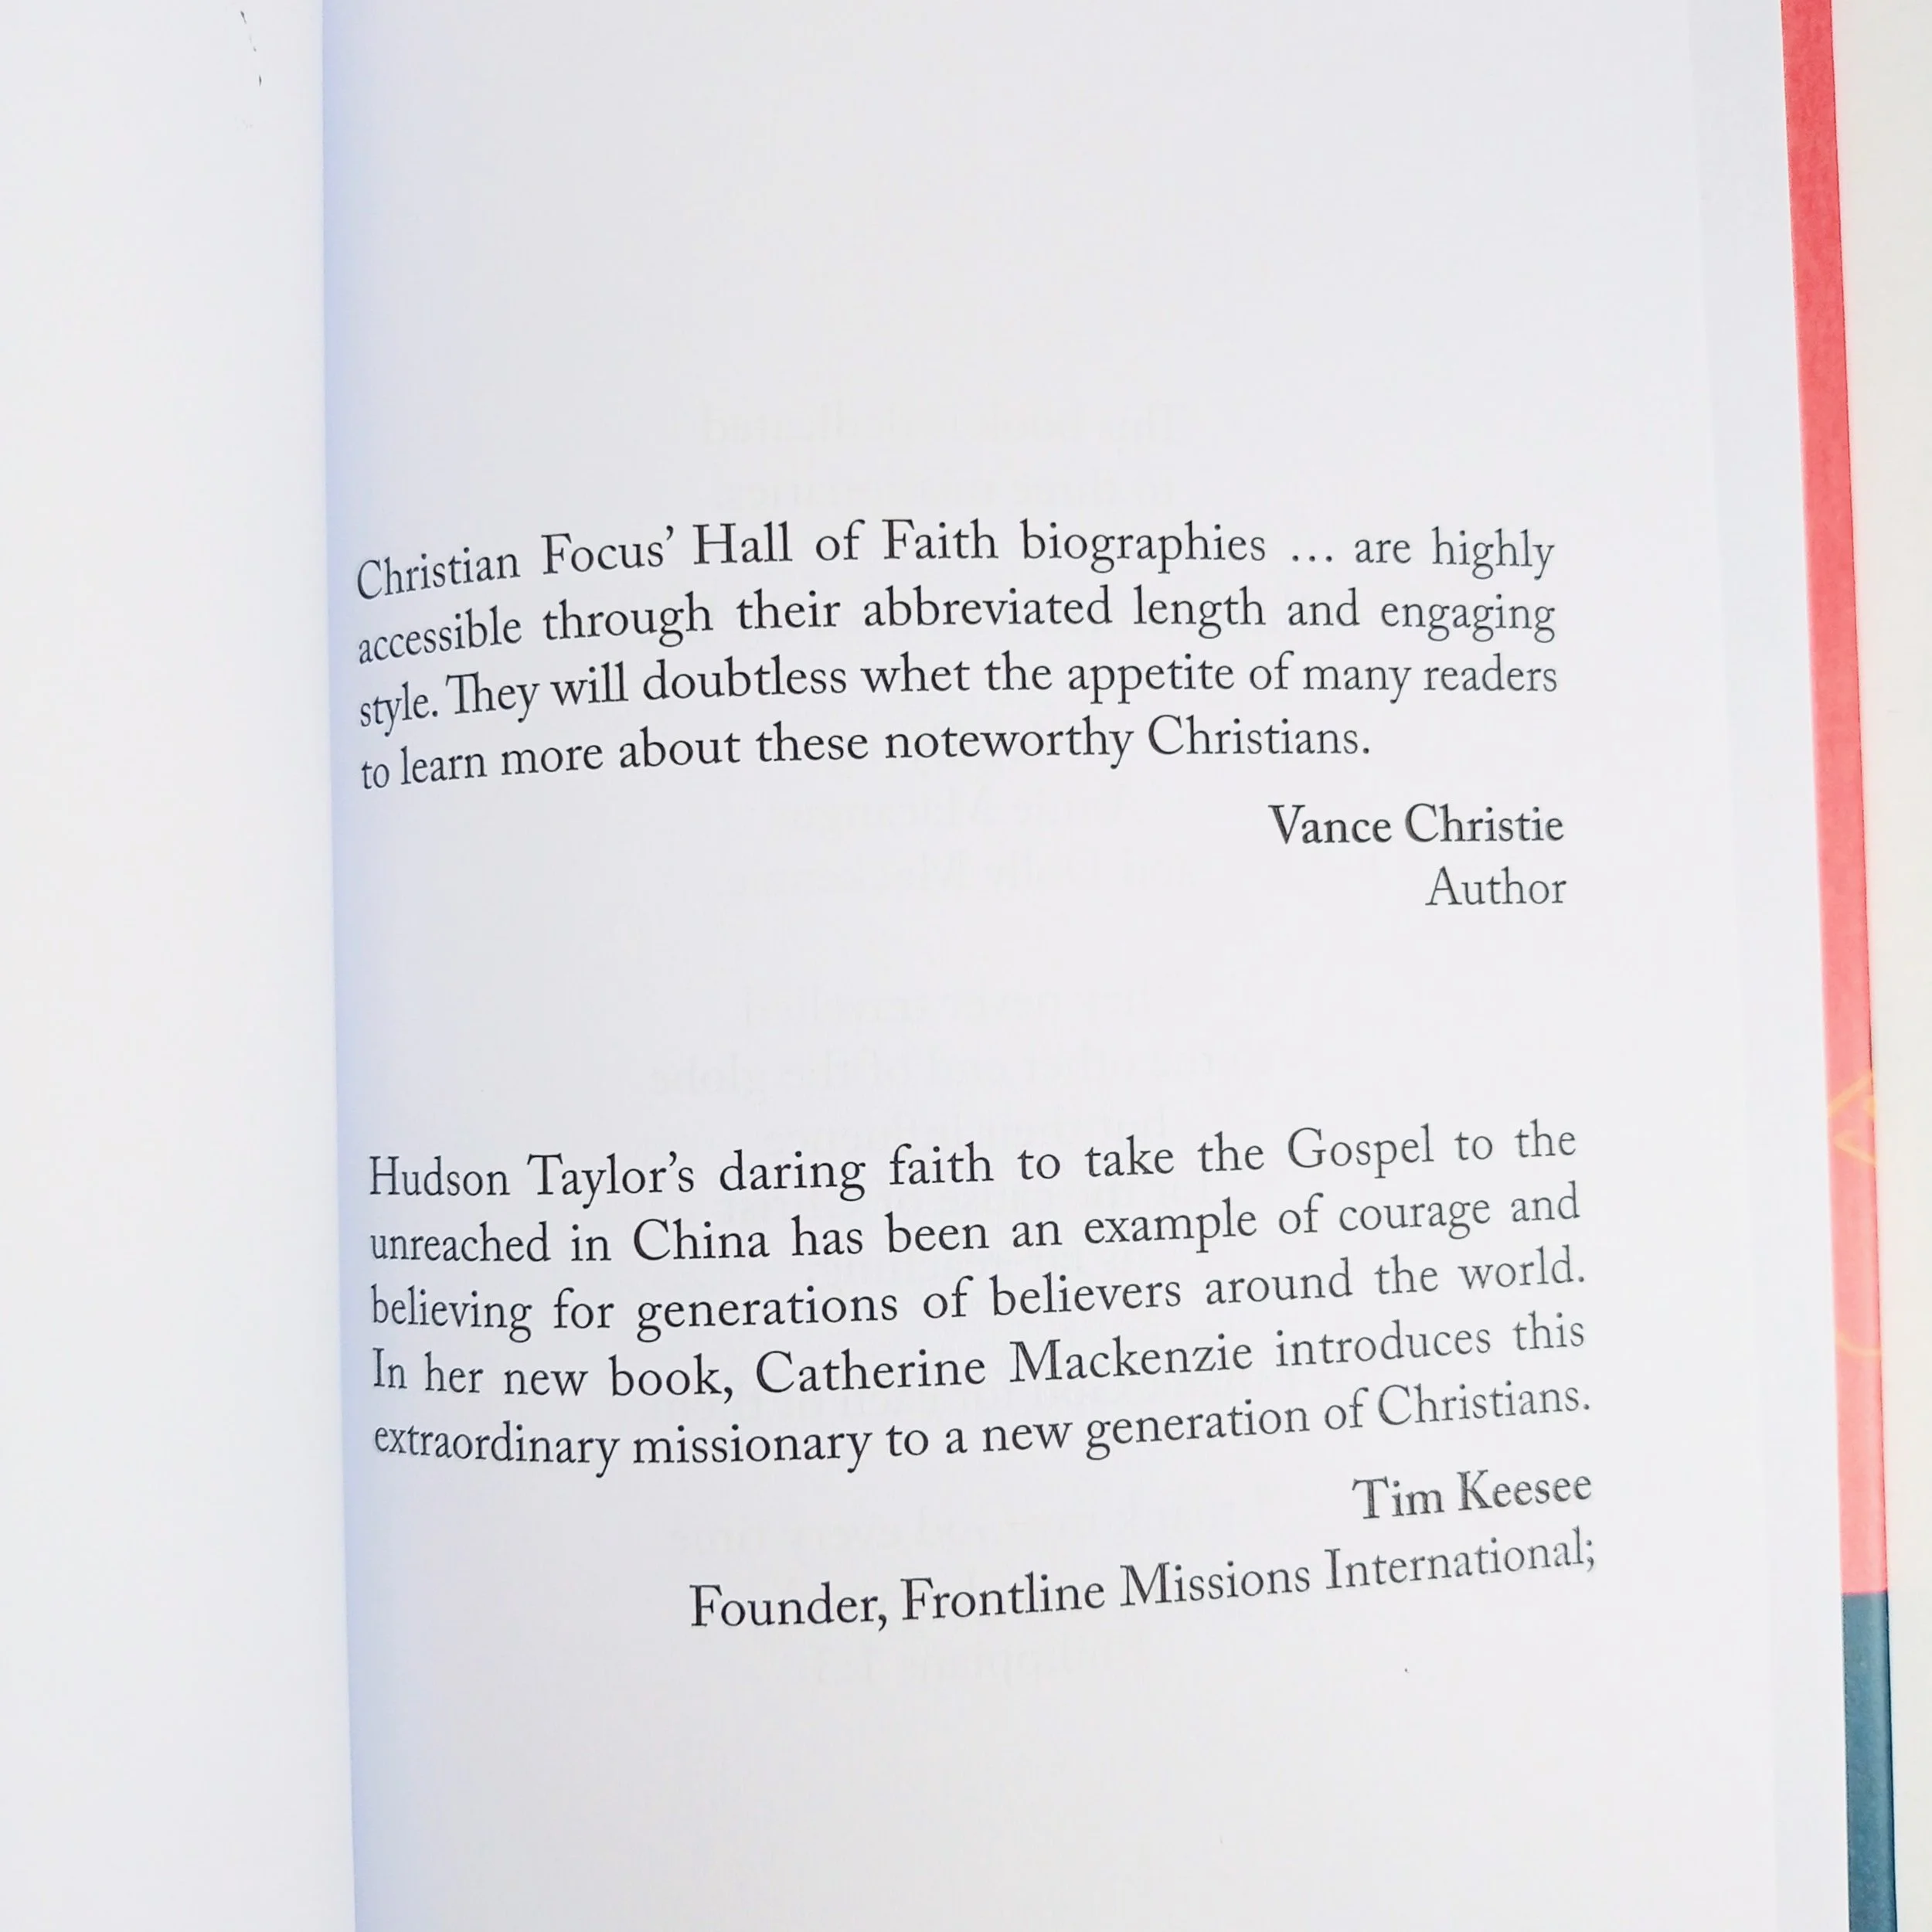 Christian Focus’ Hall of Faith biographies … are highly
accessible through their abbreviated length and engaging
style. They will doubtless whet the appetite of many readers
to learn more about these noteworthy Christians.
Vance Christie
Author
Hudson Taylor’s daring faith to take the Gospel to the
unreached in China has been an example of courage and
believing for generations of believers around the world.
In her new book, Catherine Mackenzie introduces this
extraordinary missionary to a new generation of Christians.
Tim Keesee
Founder, Frontline Missions International;